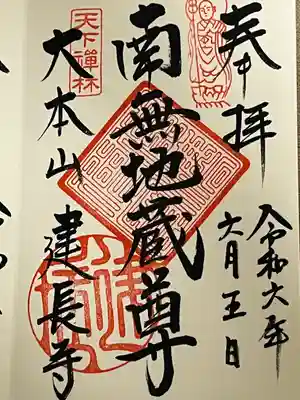 奉拝
令和六年
六月五日
南無地蔵尊
天下禅林
大本山
建長寺